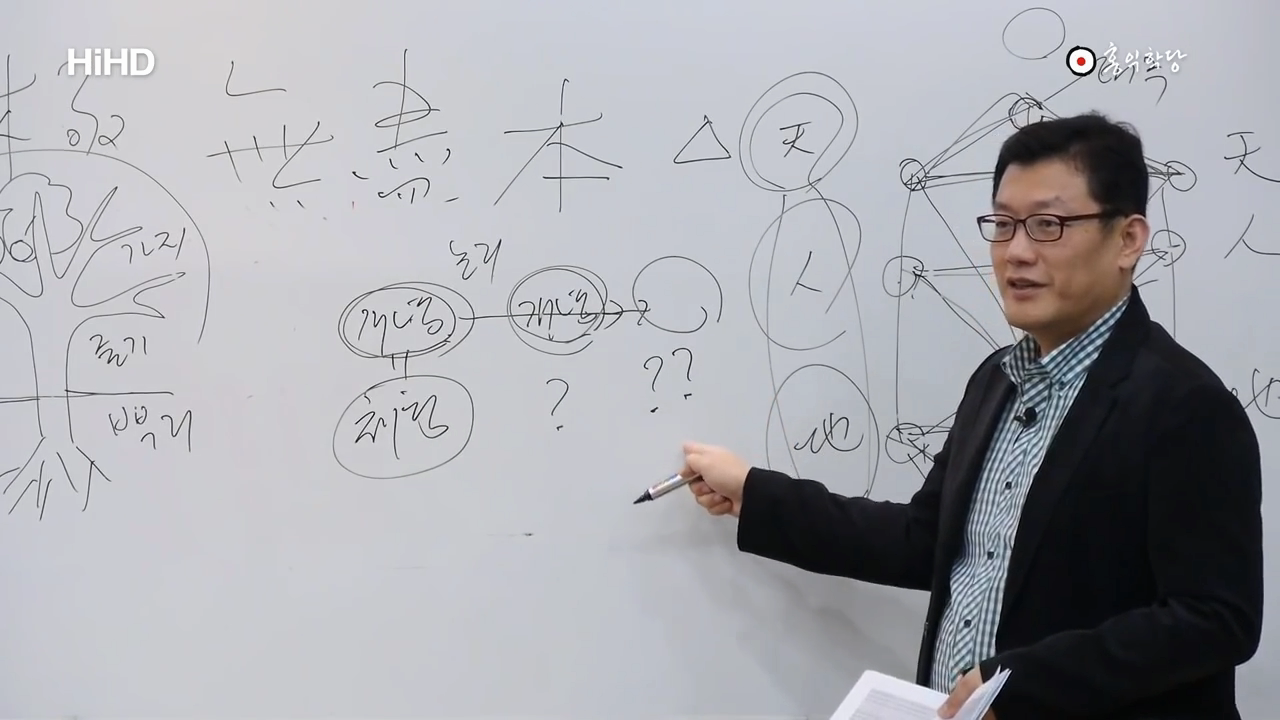 HiHD
홍익학당
無意本 △ 天
人
地
天
人
地
가지
줄기
뿌리
논리
개념 개념
체험 ? ??